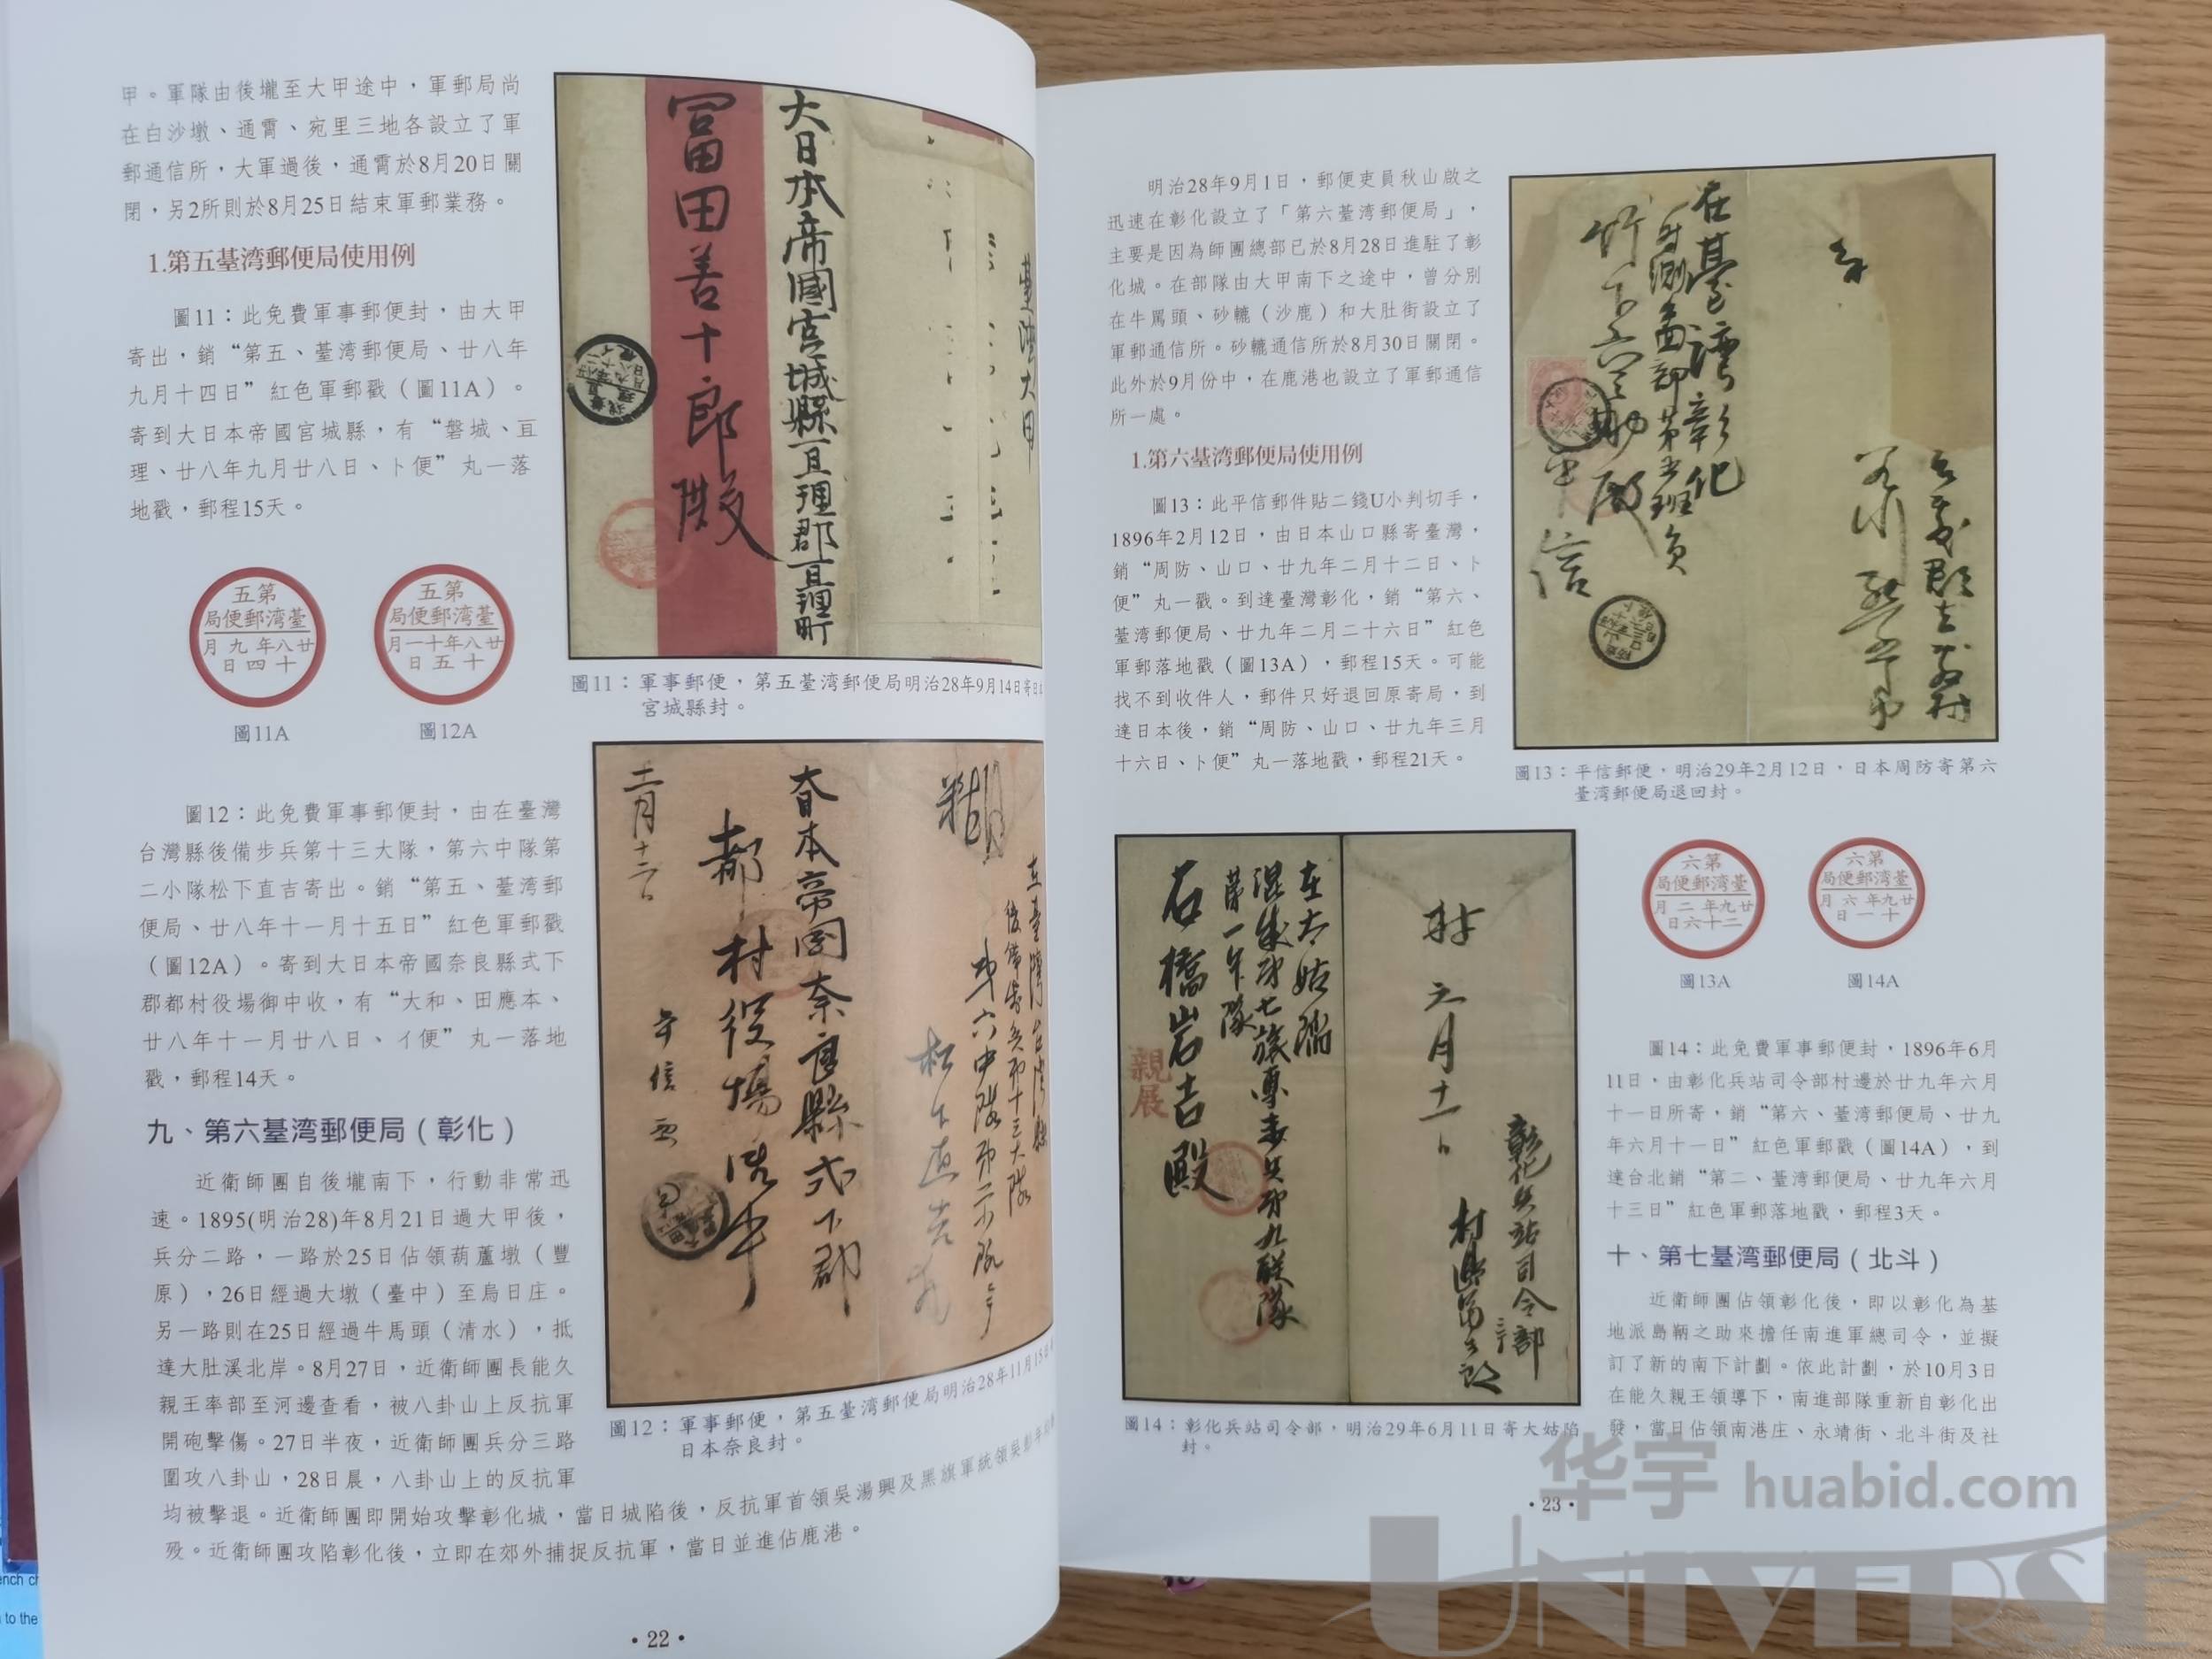 甲。軍隊由後壠至大甲途中，軍郵局尚
在白沙墩、通霄、宛里三地各設立了軍
郵通信所，大軍過後，通霄於8月20日關
閉，另2所則於8月25日結束軍郵業務。
1.第五臺湾郵便局使用例
圖11：此免費軍事郵便封，由大甲
寄出，銷“第五、臺湾郵便局、廿八年
九月十四日”紅色軍郵戳（圖11A）。
寄到大日本帝國宮城縣，有“磐城、亘
理、廿八年九月廿八日、卜便”丸一落
地戳，郵程15天。
五第
局便郵湾臺
月九年八廿
日四十
圖11A
五第
局便郵湾臺
月一十年八廿
日五十
圖12A
大日本帝國宮城縣亘理郡亘理町
冨田善十郎殿
臺湾大甲
圖11：軍事郵便，第五臺湾郵便局明治28年9月14日寄日本
宮城縣封。
圖12：此免費軍事郵便封，由在臺灣
台灣縣後備步兵第十三大隊，第六中隊第
二小隊松下直吉寄出。銷“第五、臺湾郵
便局、廿八年十一月十五日”紅色軍郵戳
（圖12A）。寄到大日本帝國奈良縣式下
郡都村役場御中收，有“大和、田應本、
廿八年十一月廿八日、イ便”丸一落地
戳，郵程14天。
大日本帝国奈良縣式下郡
都村役場御中
圖12：軍事郵便，第五臺湾郵便局明治28年11月15日寄
日本奈良封。
九、第六臺湾郵便局（彰化）
近衛師團自後壠南下，行動非常迅
速。1895(明治28)年8月21日過大甲後，
兵分二路，一路於25日佔領葫蘆墩（豐
原），26日經過大墩（臺中）至烏日庄。
另一路則在25日經過牛馬頭（清水），抵
達大肚溪北岸。8月27日，近衛師團長能久
親王率部至河邊查看，被八卦山上反抗軍
開砲擊傷。27日半夜，近衛師團兵分三路
圍攻八卦山，28日晨，八卦山上的反抗軍
均被擊退。近衛師團即開始攻擊彰化城，當日城陷後，反抗軍首領吳湯興及黑旗軍統領吳彭年均戰
歿。近衛師團攻陷彰化後，立即在郊外捕捉反抗軍，當日並進佔鹿港。
• 22 •
明治28年9月1日，郵便吏員秋山啟之
迅速在彰化設立了「第六臺湾郵便局」，
主要是因為師團總部已於8月28日進駐了彰
化城。在部隊由大甲南下之途中，曾分別
在牛罵頭、砂轆（沙鹿）和大肚街設立了
軍郵通信所。砂轆通信所於8月30日關閉。
此外於9月份中，在鹿港也設立了軍郵通信
所一處。
1.第六臺湾郵便局使用例
圖13：此平信郵件貼二錢U小判切手，
1896年2月12日，由日本山口縣寄臺灣，
銷“周防、山口、廿九年二月十二日、卜
便”丸一戳。到達臺灣彰化，銷“第六、
臺湾郵便局、廿九年二月二十六日”紅色
軍郵落地戳（圖13A），郵程15天。可能
找不到收件人，郵件只好退回原寄局，到
達日本後，銷“周防、山口、廿九年三月
十六日、卜便”丸一落地戳，郵程21天。
在臺湾彰化
圖13：平信郵便，明治29年2月12日，日本周防寄第六
臺湾郵便局退回封。
在大姑陥
混成第七旅團步兵第九联隊
第一年隊
石橋岩吉殿
親展
六月十一日
彰化兵站司令部
圖14：彰化兵站司令部，明治29年6月11日寄大姑陷
封。
六第
局便郵湾臺
月二年九廿
日六十二
圖13A
六第
局便郵湾臺
月六年九廿
日一十
圖14A
圖14：此免費軍事郵便封，1896年6月
11日，由彰化兵站司令部村邊於廿九年六月
十一日所寄，銷“第六、臺湾郵便局、廿九
年六月十一日”紅色軍郵戳（圖14A），到
達台北銷“第二、臺湾郵便局、廿九年六月
十三日”紅色軍郵落地戳，郵程3天。
十、第七臺湾郵便局（北斗）
近衛師團佔領彰化後，即以彰化為基
地派島鞆之助來擔任南進軍總司令，並擬
訂了新的南下計劃。依此計劃，於10月3日
在能久親王領導下，南進部隊重新自彰化出
發，當日佔領南港庄、永靖街、北斗街及社
• 23 •
华宇 huabid.com
UNIVERSE
to the